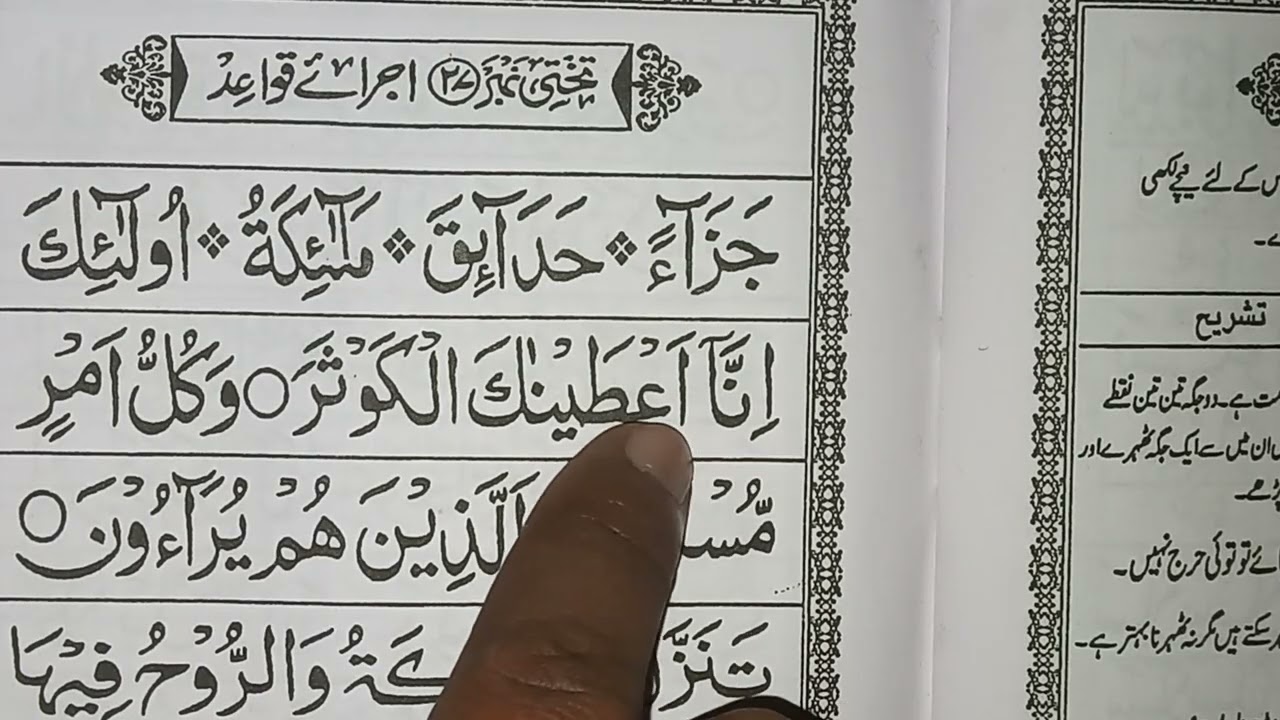 تختی نمبر ۲۷ اجرائے قواعد
جَزَآءً ❖ حَدَآئِقَ ❖ مَلٰٓئِكَةُ ❖ اُولٰٓئِكَ
اِنَّاۤ اَعْطَیْنٰكَ الْكَوْثَرَ ○ وَكُلُّ اَمْرٍ
الَّذِیْنَ هُمْ یُرَآءُوْنَ ○
وَالرُّوْحُ فِیْهَا
س کے لئے نیچے لکھی
تشریح
ہے۔ دو جگہ تین تین نقطے
ان میں سے ایک جگہ ٹھہرے اور
ئے تو کوئی حرج نہیں۔
سکتے ہیں مگر نہ ٹھہرنا بہتر ہے۔